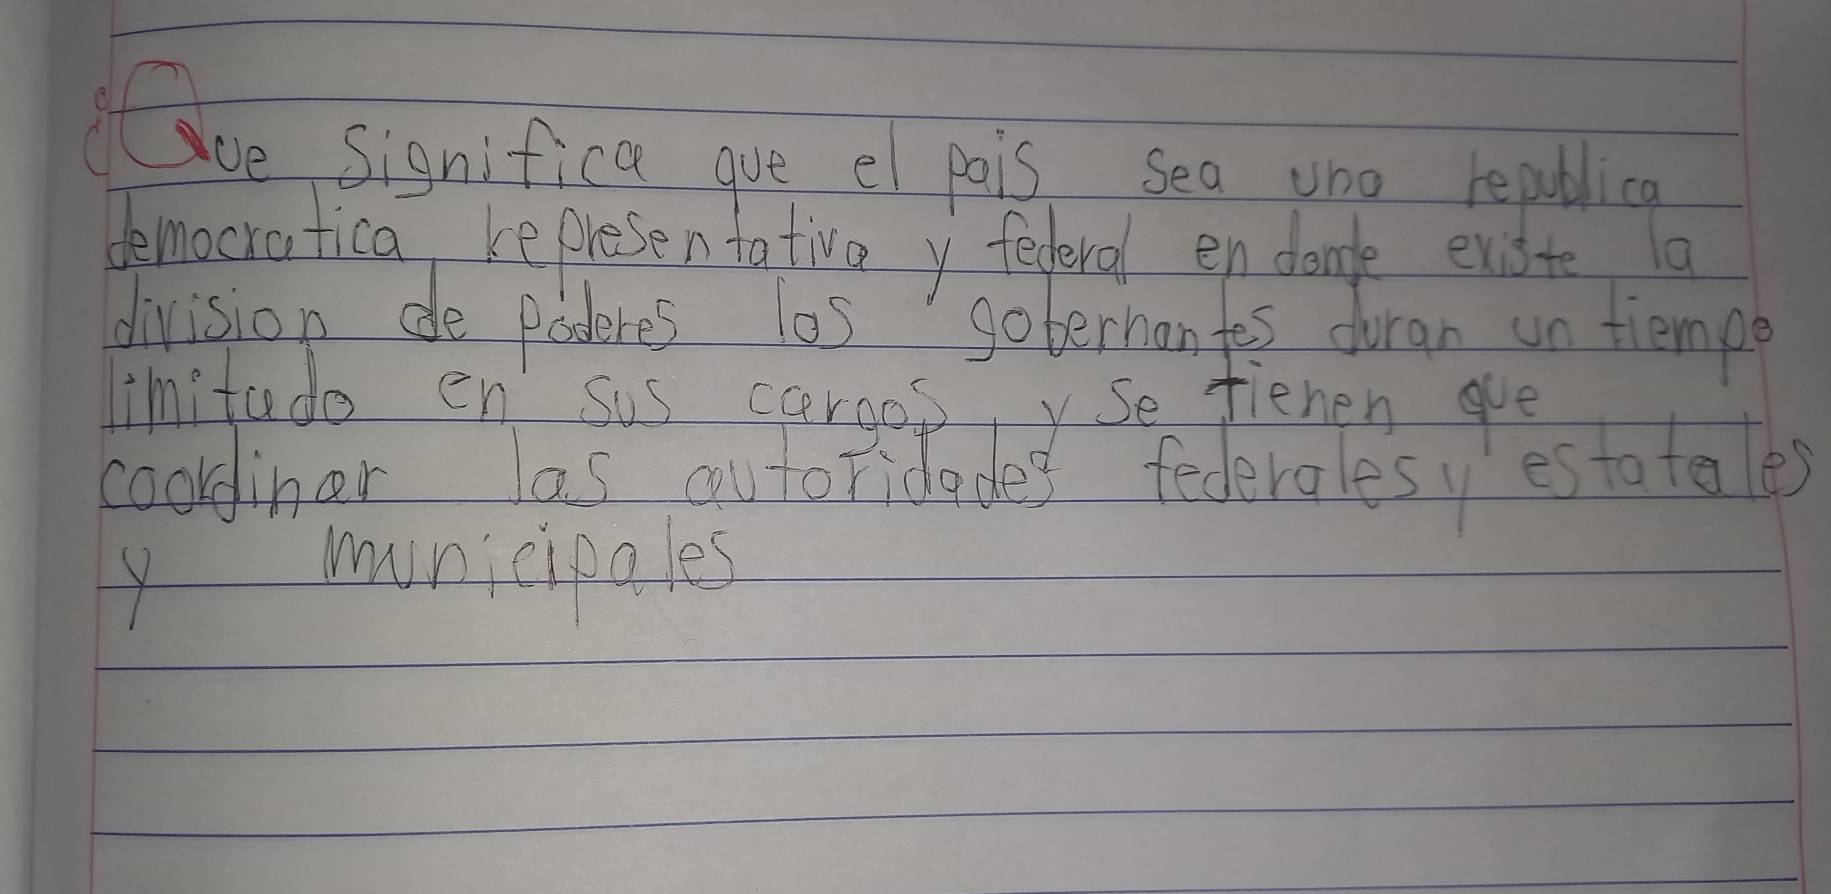 ¿Que significa que el pais sea una republica
democratica, representativa y federal en donde existe la
division de poderes los gobernantes duran un tiempo
limitado en sus cargos, y se tienen que
coordinar las autoridades federales y estatales
y municipales